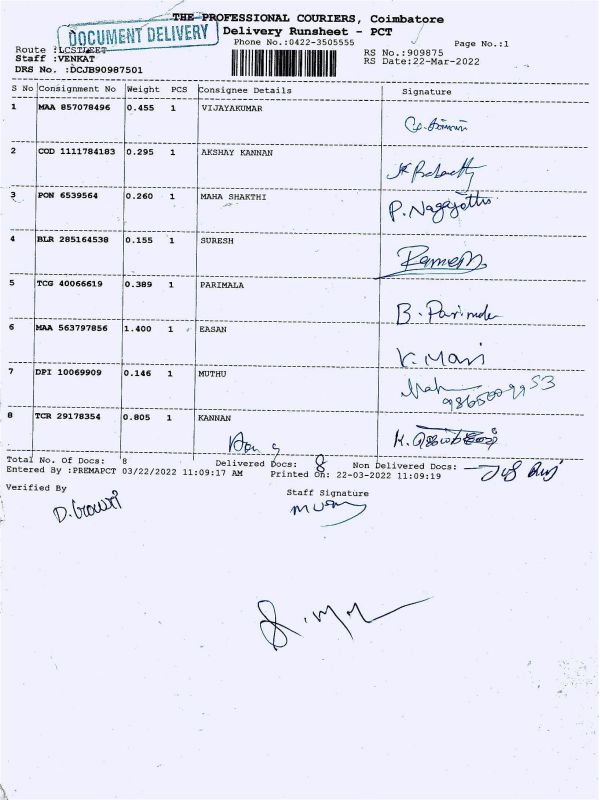 DOCUMENT DELIVERY
THE PROFESSIONAL COURIERS, Coimbatore
Delivery Runsheet - PCT
Phone No.:0422-3505555 Page No.:1
Route :LCSTLEET RS No.:909875
Staff :VENKAT RS Date:22-Mar-2022
DRS No. :DCJB90987501
S No Consignment No Weight PCS Consignee Details Signature
1 MAA 857078496 0.455 1 VIJAYAKUMAR
2 COD 1111784183 0.295 1 AKSHAY KANNAN
3 PON 6539564 0.260 1 MAHA SHAKTHI P. Nagajothi
4 BLR 285164538 0.155 1 SURESH
5 TCG 40066619 0.389 1 PARIMALA B. Parimala
6 MAA 563797856 1.400 1 EASAN V. Mari
7 DPI 10069909 0.146 1 MUTHU
8 TCR 29178354 0.805 1 KANNAN
Total No. Of Docs: 8 Delivered Docs: 8 Non Delivered Docs:
Entered By :PREMAPCT 03/22/2022 11:09:17 AM Printed On: 22-03-2022 11:09:19
Verified By Staff Signature
D. Gowri